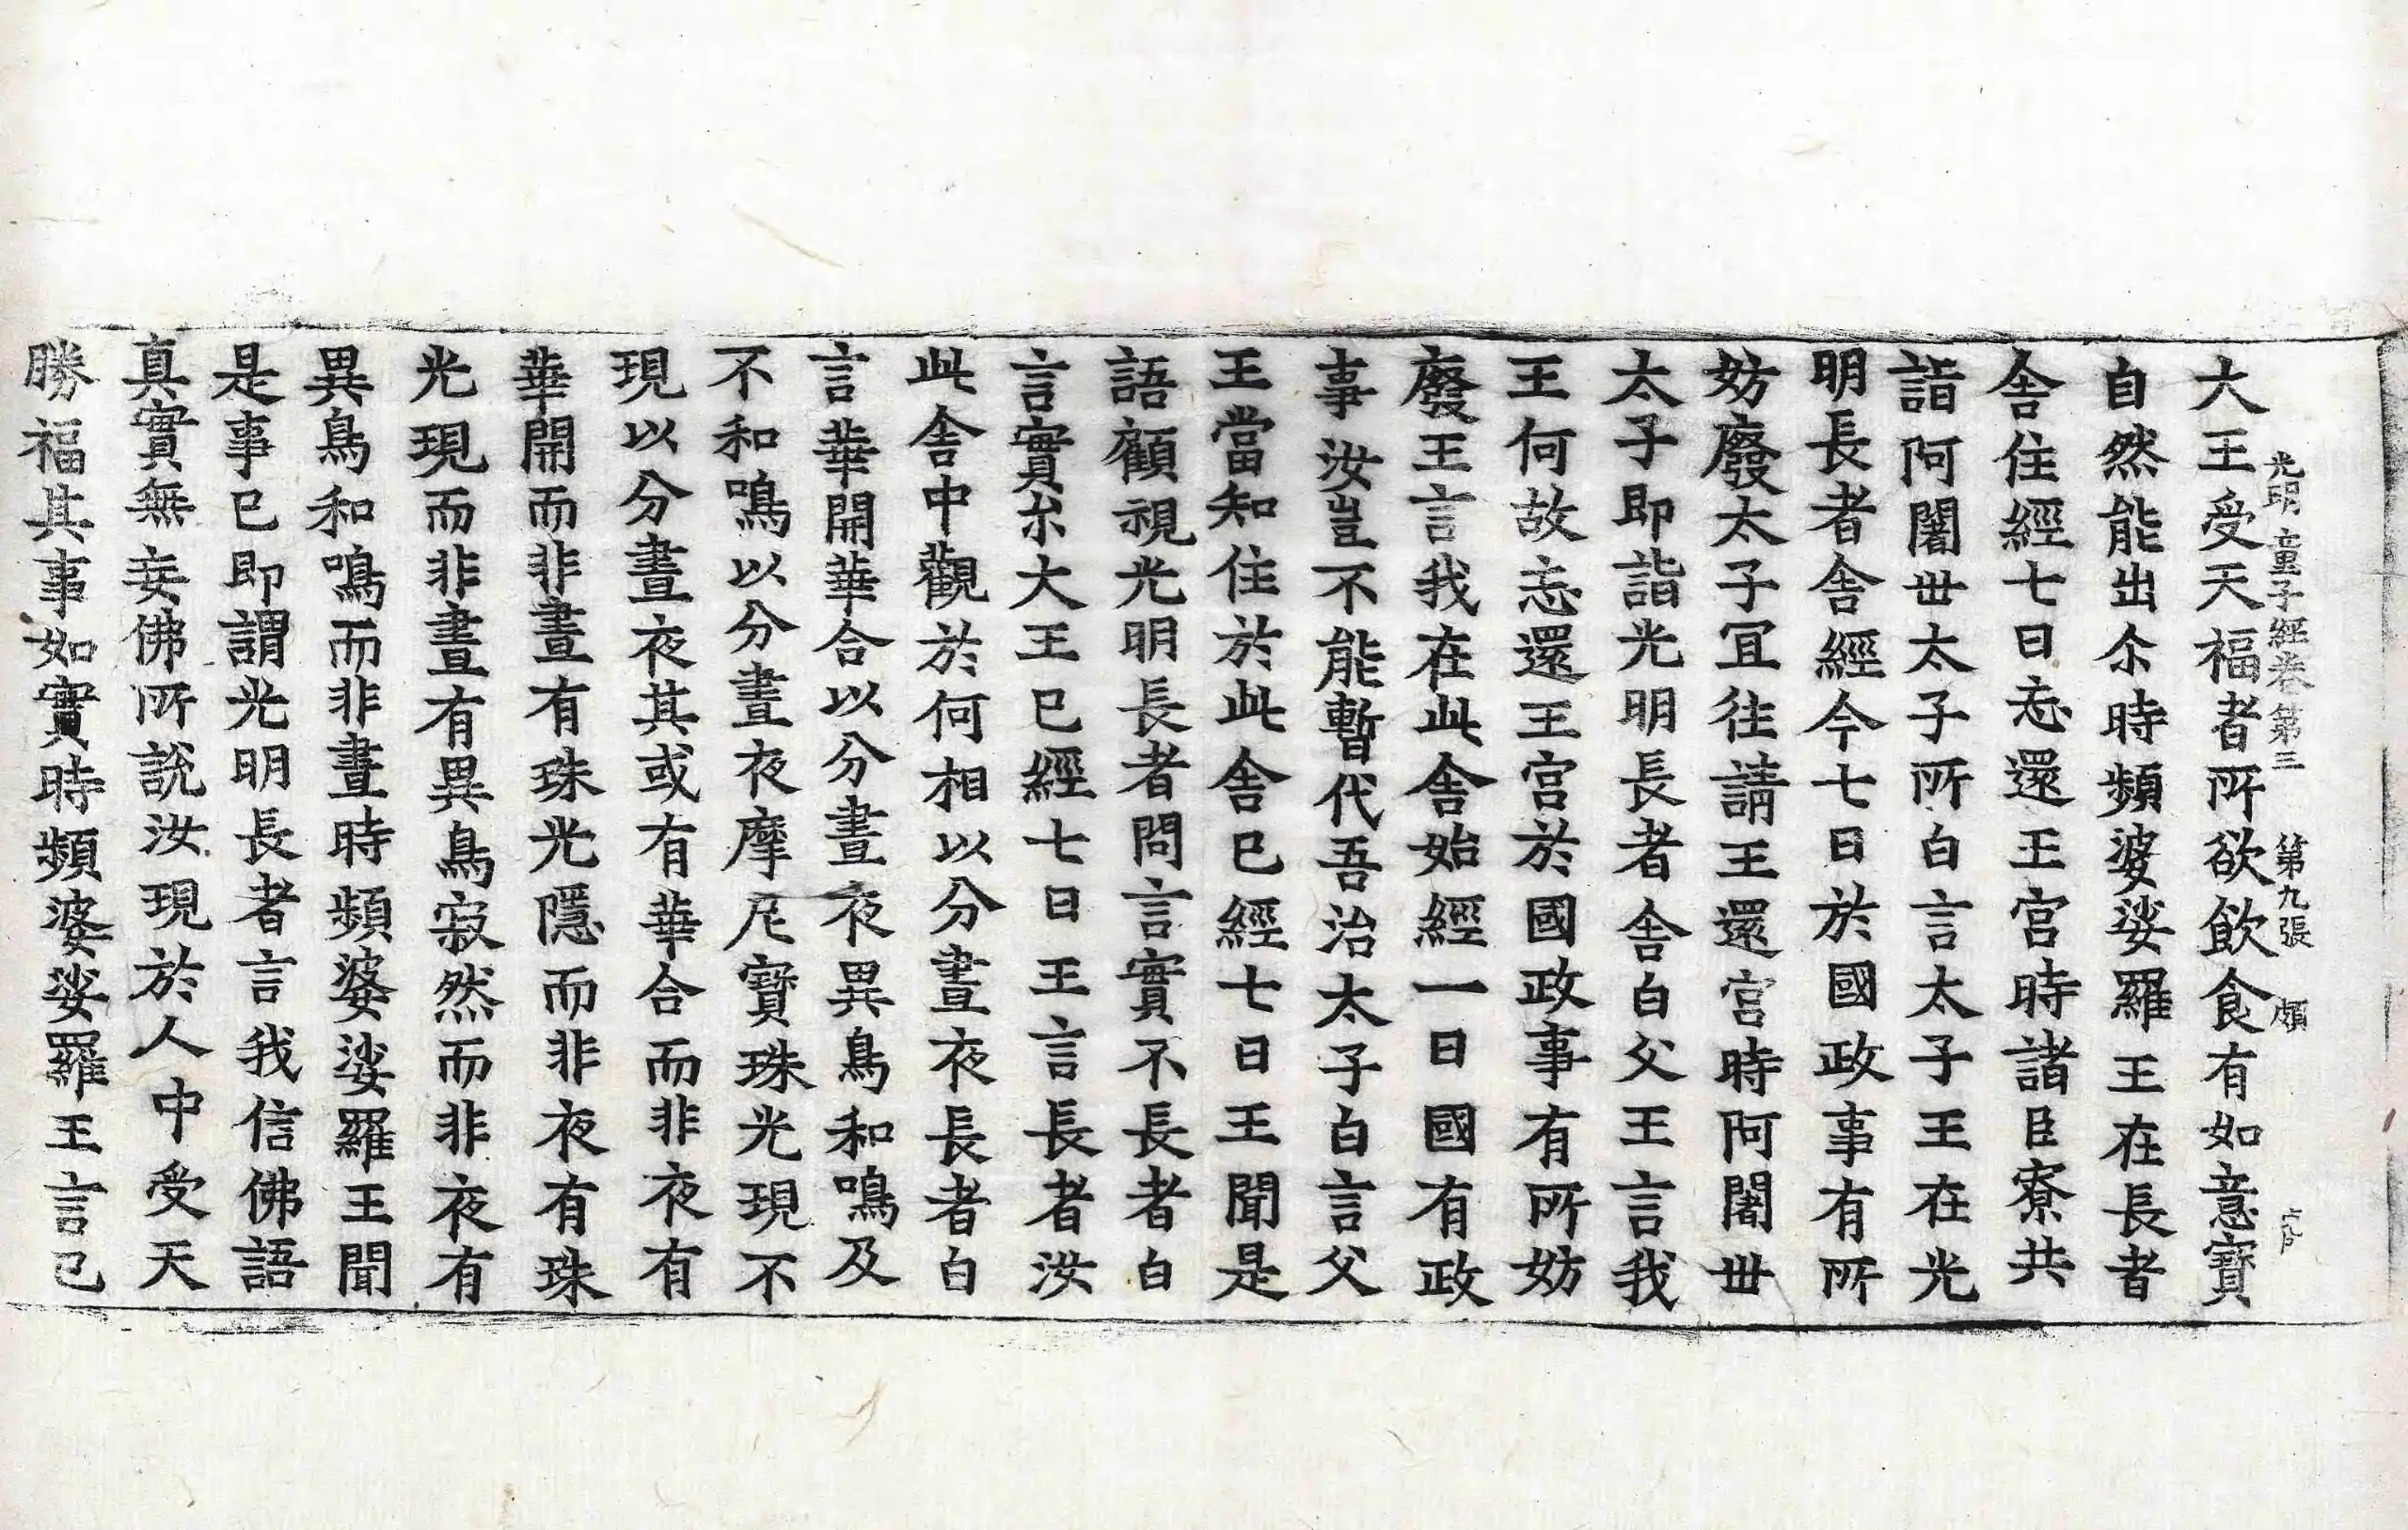 大王受天福者所欲飮食有如意寶
光明童子經卷第三 第九張 傾
自然能出尒時頻婆娑羅王在長者
舍住經七日忘還王宮時諸臣寮共
詣阿闍世太子所白言太子王在光
明長者舍經今七日於國政事有所
妨廢太子宜往請王還宮時阿闍世
太子即詣光明長者舍白父王言我
王何故忘還王宮於國政事有所妨
廢王言我在此舍始經一日國有政
事汝豈不能暫代吾治太子白言父
王當知住於此舍已經七日王聞是
語顧視光明長者問言實不長者白
言實尒大王已經七日王言長者汝
此舍中觀於何相以分晝夜長者白
言華開華合以分晝夜異鳥和鳴及
不和鳴以分晝夜摩尼寶珠光現不
現以分晝夜其或有華合而非夜有
華開而非晝有珠光隱而非夜有珠
光現而非晝有異鳥寂然而非夜有
異鳥和鳴而非晝時頻婆娑羅王聞
是事已即謂光明長者言我信佛語
真實無妄佛所說汝現於人中受天
勝福其事如實時頻婆娑羅王言已